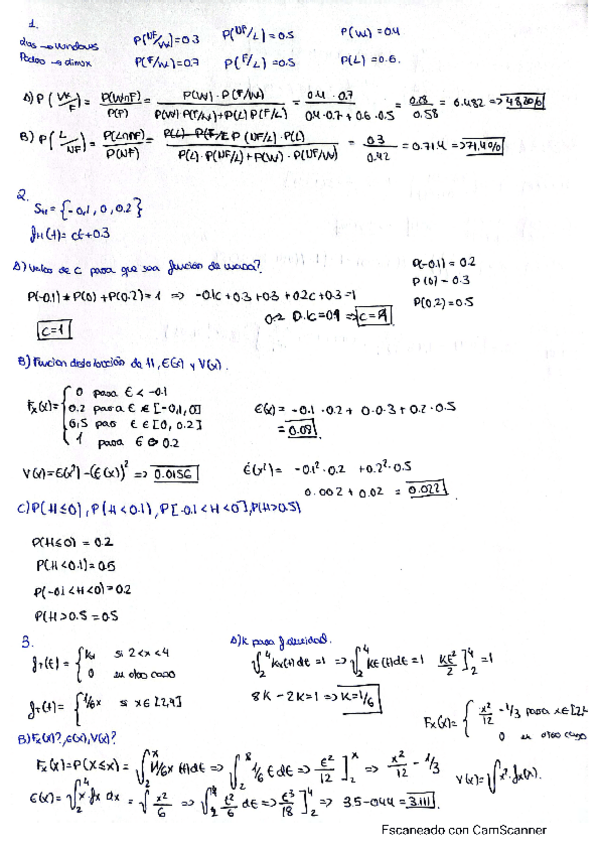 1.
dos → windows P(NF/W)=0.3 P(NF/L)=0.5 P(W)=0.4
P(F/W)=0.7 P(F/L)=0.5 P(L)=0.6.
A) P(W/F) = P(W∩F)/P(F) = P(W)·P(F/W) / P(W)·P(F/W)+P(L)P(F/L) = 0.4·0.7 / 0.4·0.7+0.6·0.5 = 0.28/0.58 = 0.482 => 48.20%
B) P(L/NF) = P(L∩NF)/P(NF) = P(NF/L)·P(L) / P(L)·P(NF/L)+P(W)·P(NF/W) = 0.3/0.42 = 0.714 => 71.4%
2.
S_H = {-0.1, 0, 0.2}
f_H(t) = ct+0.3
A) Valor de c para que sea función de masa?
P(-0.1) = 0.2
P(0) = 0.3
P(0.2) = 0.5
P(-0.1)+P(0)+P(0.2)=1 => -0.1c+0.3+0.3+0.2c+0.3=1
0.1c=0.1 => c=1
c=1
B) Funcion distribución de H, E(x) y V(x).
F_X(x)= { 0 para t < -0.1
0.2 para t ∈ [-0.1, 0]
0.5 para t ∈ [0, 0.2]
1 para t 0.2
E(x) = -0.1·0.2 + 0·0.3 + 0.2·0.5
= 0.08.
V(x)=E(x²)-(E(x))² => 0.0156
E(x²) = -0.1²·0.2 + 0.2²·0.5
0.002 + 0.02 = 0.022.
C) P(H≤0), P(H<0.1), P[-0.1<H<0], P(H>0.5)
P(H≤0) = 0.2
P(H<0.1) = 0.5
P(-0.1<H<0) = 0.2
P(H>0.5 = 0.5
3.
A) K para f densidad.
f_T(t) = { kx si 2<x<4
0 en otro caso
∫₂⁴ kx(t)dt = 1 => ∫₂⁴ kt(t)dt = 1 kt²/2 ]₂⁴ = 1
8K - 2K = 1 => K=1/6
f_T(t) = { 1/6x si x∈[2,4]
F_X(x)= { x²/12 - 1/3 para x∈[2,
0 en otro caso
B) F_X(x)?, E(x), V(x)?
F_X(x)=P(X≤x) = ∫₂ˣ 1/6x (t)dt => ∫₂ 1/6 t dt => t²/12 ]₂ˣ => x²/12 - 1/3
V(x)=∫x²·f_X(x).
E(x) = ∫₂⁴ x·fx dx = ∫ x²/6 => ∫₂⁴ t²/6 dt => t³/18 ]₂⁴ => 3.5-0.44 = 3.111.
Escaneado con CamScanner